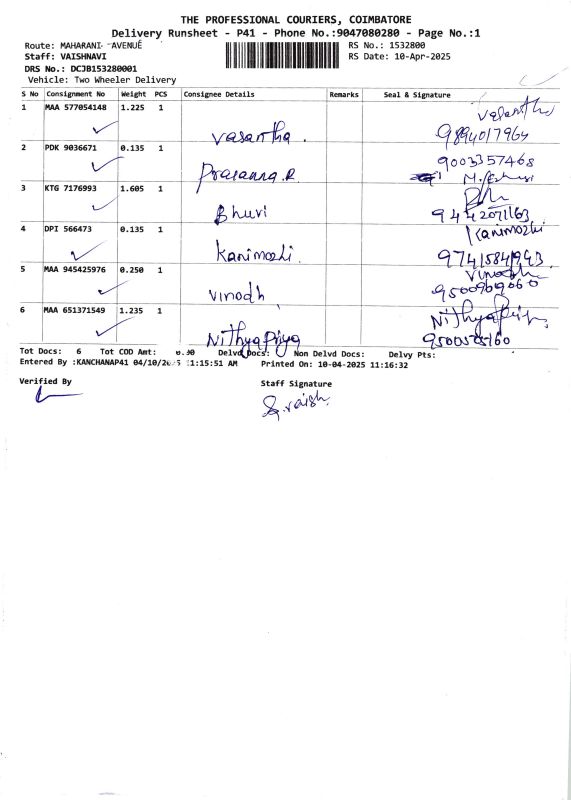 THE PROFESSIONAL COURIERS, COIMBATORE
Delivery Runsheet - P41 - Phone No.:9047080280 - Page No.:1
Route: MAHARANI AVENUE
RS No.: 1532800
Staff: VAISHNAVI
RS Date: 10-Apr-2025
DRS No.: DCJB153280001
Vehicle: Two Wheeler Delivery
S No Consignment No Weight PCS Consignee Details Remarks Seal & Signature
1 MAA 577054148 1.225 1 Vasantha. Vasantha
9894017964
2 PDK 9036671 0.135 1 Prasanna.R 9003357468
3 KTG 7176993 1.605 1 Bhuvi
4 DPI 566473 0.135 1 Kanimozhi. Kanimozhi
5 MAA 945425976 0.250 1 Vinodh Vinodh
6 MAA 651371549 1.235 1 NithyaPriya NithyaPriya
Tot Docs: 6 Tot COD Amt: 0.00 Delvd Docs: Non Delvd Docs: Delvy Pts:
Entered By :KANCHANAP41 04/10/2025 11:15:51 AM Printed On: 10-04-2025 11:16:32
Verified By Staff Signature
S.Vaish.